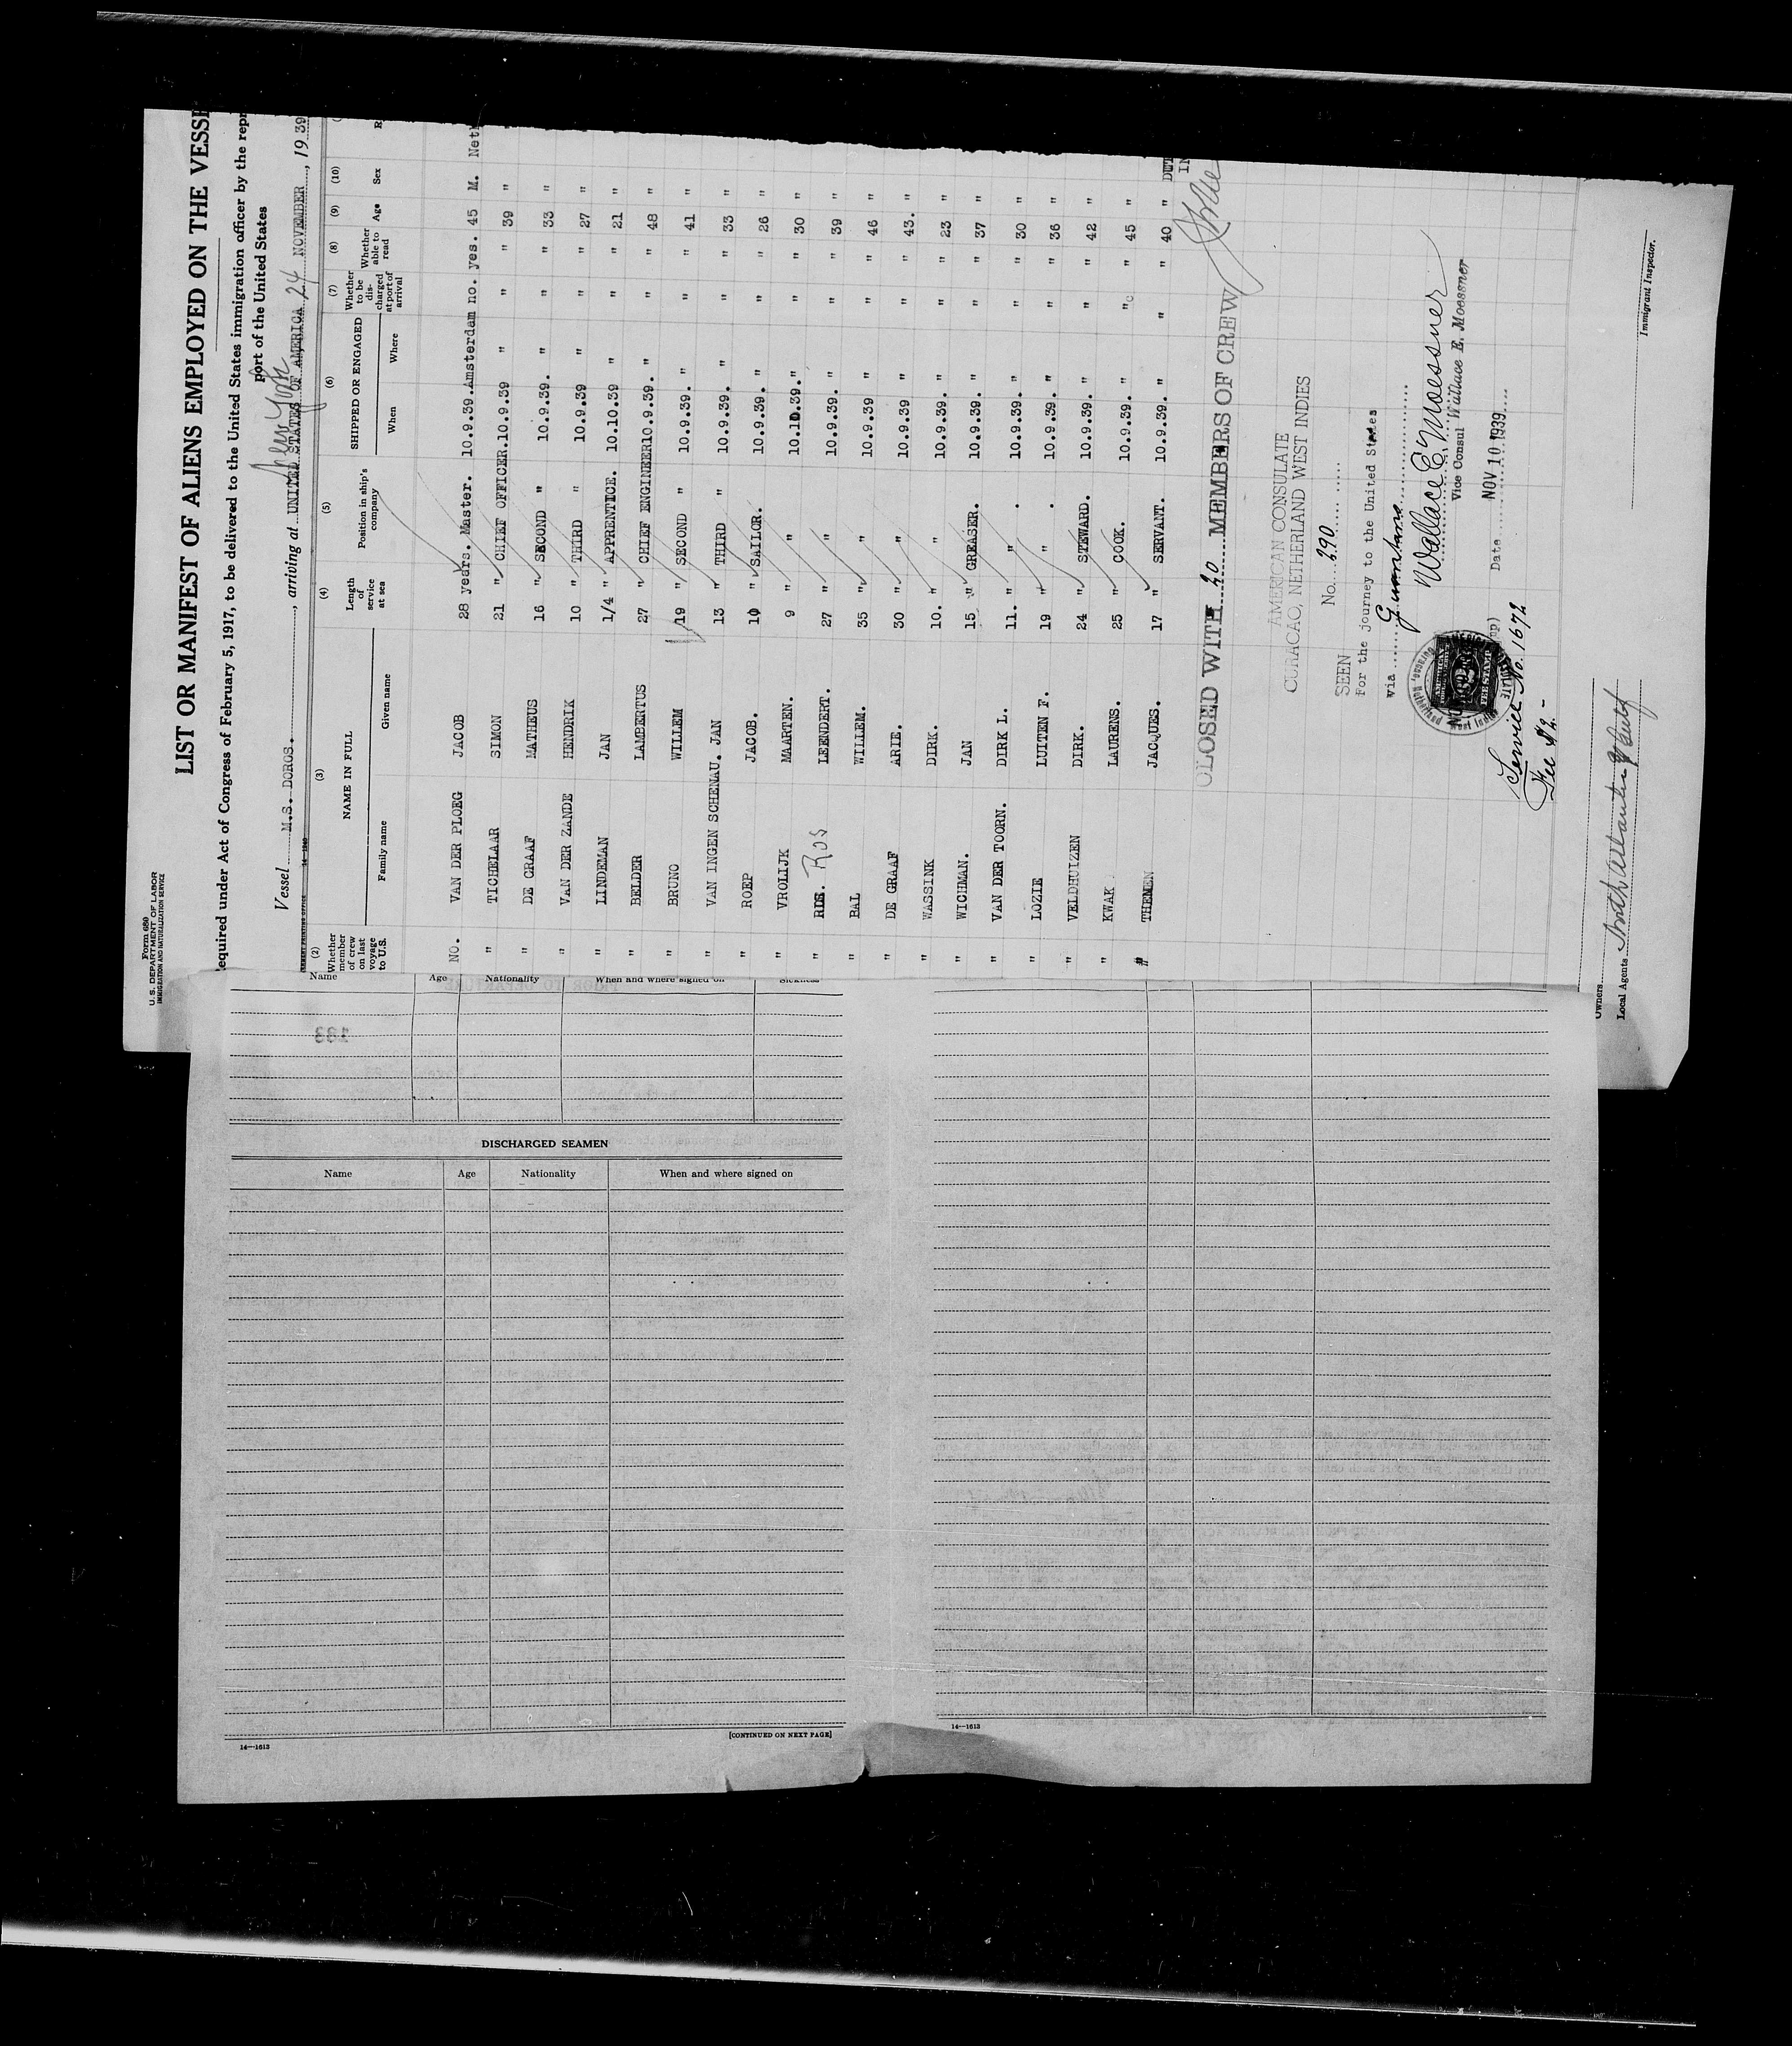 Form 680
U.S. DEPARTMENT OF LABOR
IMMIGRATION AND NATURALIZATION SERVICE
LIST OR MANIFEST OF ALIENS EMPLOYED ON THE VESSE
equired under Act of Congress of February 5, 1917, to be delivered to the United States immigration officer by the repr
port of the United States
New York
Vessel M.S. DOROS. , arriving at UNITED STATES OF AMERICA 24 NOVEMBER , 1939
(2) (3) (4) (5) (6) (7) (8) (9) (10)
Whether member of crew on last voyage to U.S. NAME IN FULL Length of service at sea Position in ship's company SHIPPED OR ENGAGED Whether to be discharged at port of arrival Whether able to read Age Sex R
Family name Given name When Where
NO. VAN DER PLOEG JACOB 28 years. Master. 10.9.39. Amsterdam no. yes. 45 M. Neth
" TICHELAAR SIMON 21 " CHIEF OFFICER. 10.9.39 " " " 39 "
" DE GRAAF MATHEUS 16 " SECOND " 10.9.39. " " " 33 "
" VAN DER ZANDE HENDRIK 10 " THIRD " 10.9.39 " " " 27 "
" LINDEMAN JAN 1/4 " APPRENTICE. 10.10.39 " " " 21 "
" BELDER LAMBERTUS 27 " CHIEF ENGINEER 10.9.39. " " " 48 "
" BRUNO WILLEM 19 " SECOND " 10.9.39. " " " 41 "
" VAN INGEN SCHENAU. JAN 13 " THIRD " 10.9.39. " " " 33 "
" ROEP JACOB. 10 " SAILOR. 10.9.39. " " " 26 "
" VROLIJK MAARTEN. 9 " " 10.10.39. " " " 30 "
" Ros LEENDERT. 27 " " 10.9.39. " " " 39 "
" BAL WILLEM. 35 " " 10.9.39 " " " 46 "
" DE GRAAF ARIE. 30 " " 10.9.39 " " " 43. "
" WASSINK DIRK. 10. " " 10.9.39. " " " 23 "
" WICHMAN. JAN 15 " GREASER. 10.9.39. " " " 37 "
" VAN DER TOORN. DIRK L. 11. " " . 10.9.39. " " " 30 "
" LOZIE LUITEN F. 19 " " . 10.9.39. " " " 36 "
" VELDHUIZEN DIRK. 24 " STEWARD. 10.9.39. " " " 42 "
" KWAK LAURENS. 25 " COOK. 10.9.39. " " " 45 "
" THEMEN JACQUES. 17 " SERVANT. 10.9.39. " " " 40 " DUT
IN
CLOSED WITH 20 MEMBERS OF CREW
AMERICAN CONSULATE
CURACAO, NETHERLAND WEST INDIES
No. 290
SEEN
For the journey to the United States
via
Wallace E. Moessner
Vice Consul Wallace E. Moessner
Date NOV 10 1939
Service No. 1672
Fee $2.-
Owners
Local Agents
Immigrant Inspector.
Name Age Nationality When and where signed on Sickness
133
DISCHARGED SEAMEN
Name Age Nationality When and where signed on
[CONTINUED ON NEXT PAGE]
14—1613
14—1613